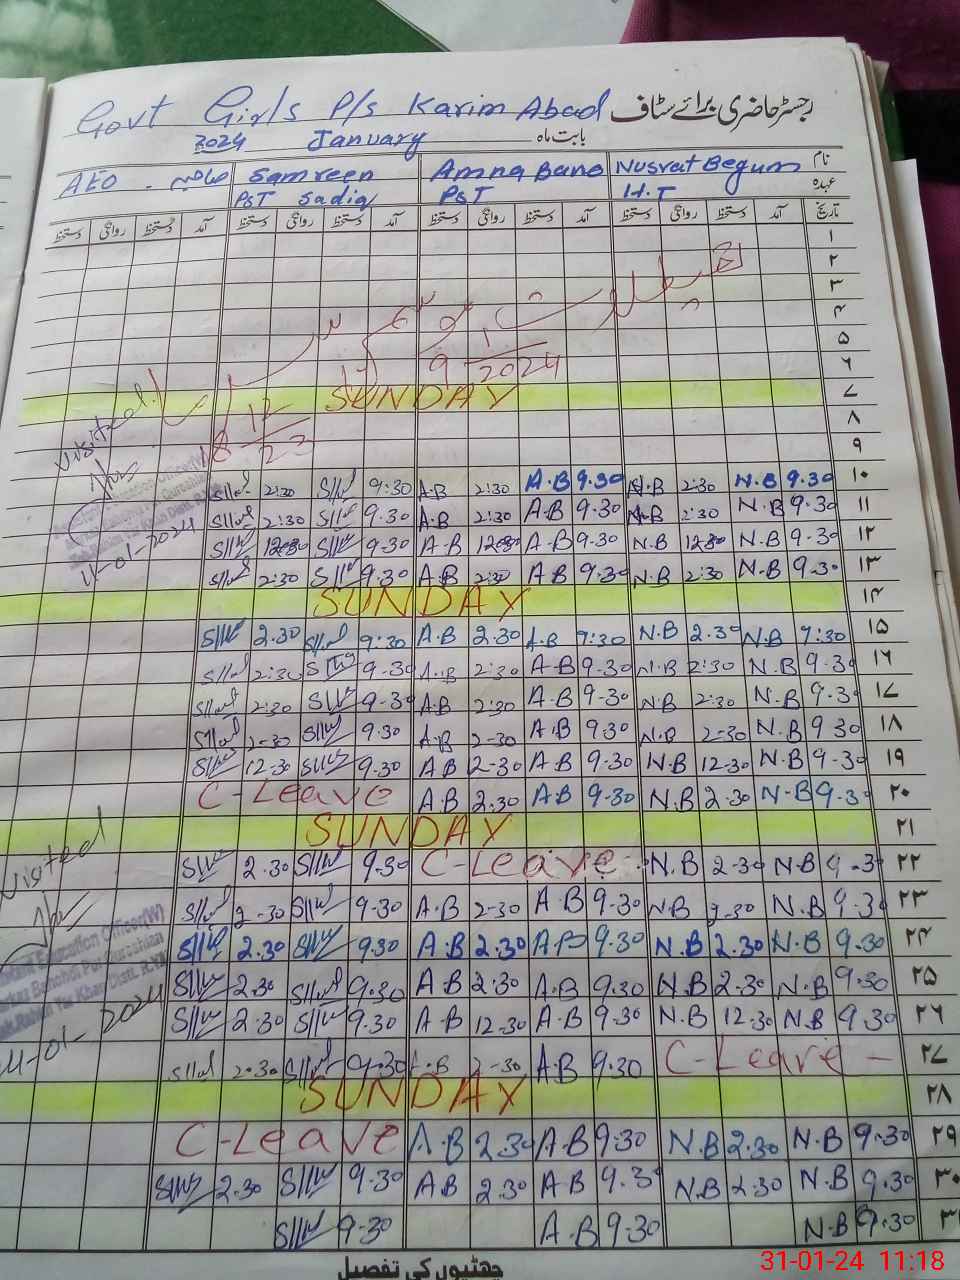 Govt Girls P/s Karim Abad رجسٹر حاضری برائے سٹاف
2024 January بابت ماہ
AEO Samreen Amna Bano Nusrat Begum نام
PST Sadiq PST H.T عہدہ
دستخط روانگی دستخط آمد دستخط روانگی دستخط آمد دستخط روانگی دستخط آمد دستخط روانگی دستخط آمد تاریخ
۱
۲
۳
۴
۵
۶
9 1 2024
SUNDAY ۷
Visited
۸
18 12 23
۹
2:30 9:30 A.B 2:30 A.B 9.30 N.B 2:30 N.B 9.30 ۱۰
2:30 9.30 A.B 2:30 A-B 9.30 N.B 2:30 N.B 9.30 ۱۱
11-01-2024
12:30 9.30 A-B 12:30 A-B 9.30 N.B 12:30 N.B 9-30 ۱۲
2:30 9.30 A.B 2:30 A.B 9.30 N.B 2:30 N.B 9.30 ۱۳
SUNDAY ۱۴
2.30 9:30 A.B 2.30 A.B 9:30 N.B 2.30 N.B 9:30 ۱۵
2:30 9.30 A.B 2:30 A-B 9.30 N.B 2:30 N.B 9.30 ۱۶
2:30 9-30 A.B 2:30 A-B 9-30 N.B 2:30 N.B 9.30 ۱۷
2-30 9.30 A.B 2-30 A.B 9.30 N.B 2-30 N.B 9 30 ۱۸
12-30 9.30 A B 2-30 A.B 9.30 N.B 12-30 N.B 9-30 ۱۹
C-Leave A.B 2.30 A.B 9-30 N.B 2-30 N-B 9.30 ۲۰
SUNDAY ۲۱
Visited
2.30 9.30 C-Leave N.B 2-30 N.B 9-30 ۲۲
2-30 9-30 A.B 2-30 A.B 9.30 N.B 2-30 N.B 9.30 ۲۳
Education Officer(W)
2.30 9.30 A.B 2.30 A.B 9.30 N.B 2.30 N.B 9.30 ۲۴
2.30 9.30 A.B 2.30 A.B 9.30 N.B 2-30 N.B 9.30 ۲۵
2.30 9.30 A-B 12-30 A-B 9.30 N.B 12.30 N.B 9.30 ۲۶
-01-2024
2.30 9.30 A.B 2-30 A.B 9.30 C-Leave - ۲۷
SUNDAY ۲۸
C-Leave A.B 2.30 A.B 9.30 N.B 2.30 N.B 9.30 ۲۹
2.30 9.30 A B 2.30 A B 9.30 N.B 2.30 N.B 9.30 ۳۰
9-30 A.B 9.30 N.B 9.30
چھٹیوں کی تفصیل
31-01-24 11:18